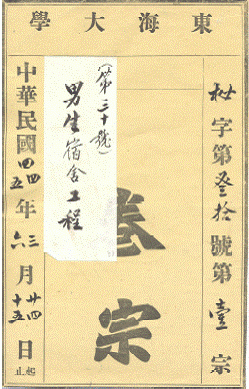 東海大學
秘字第叁拾號第壹宗
卷宗
(第三十號)
男生宿舍工程
中華民國四四年三月廿四日起
四五 六 十五 止